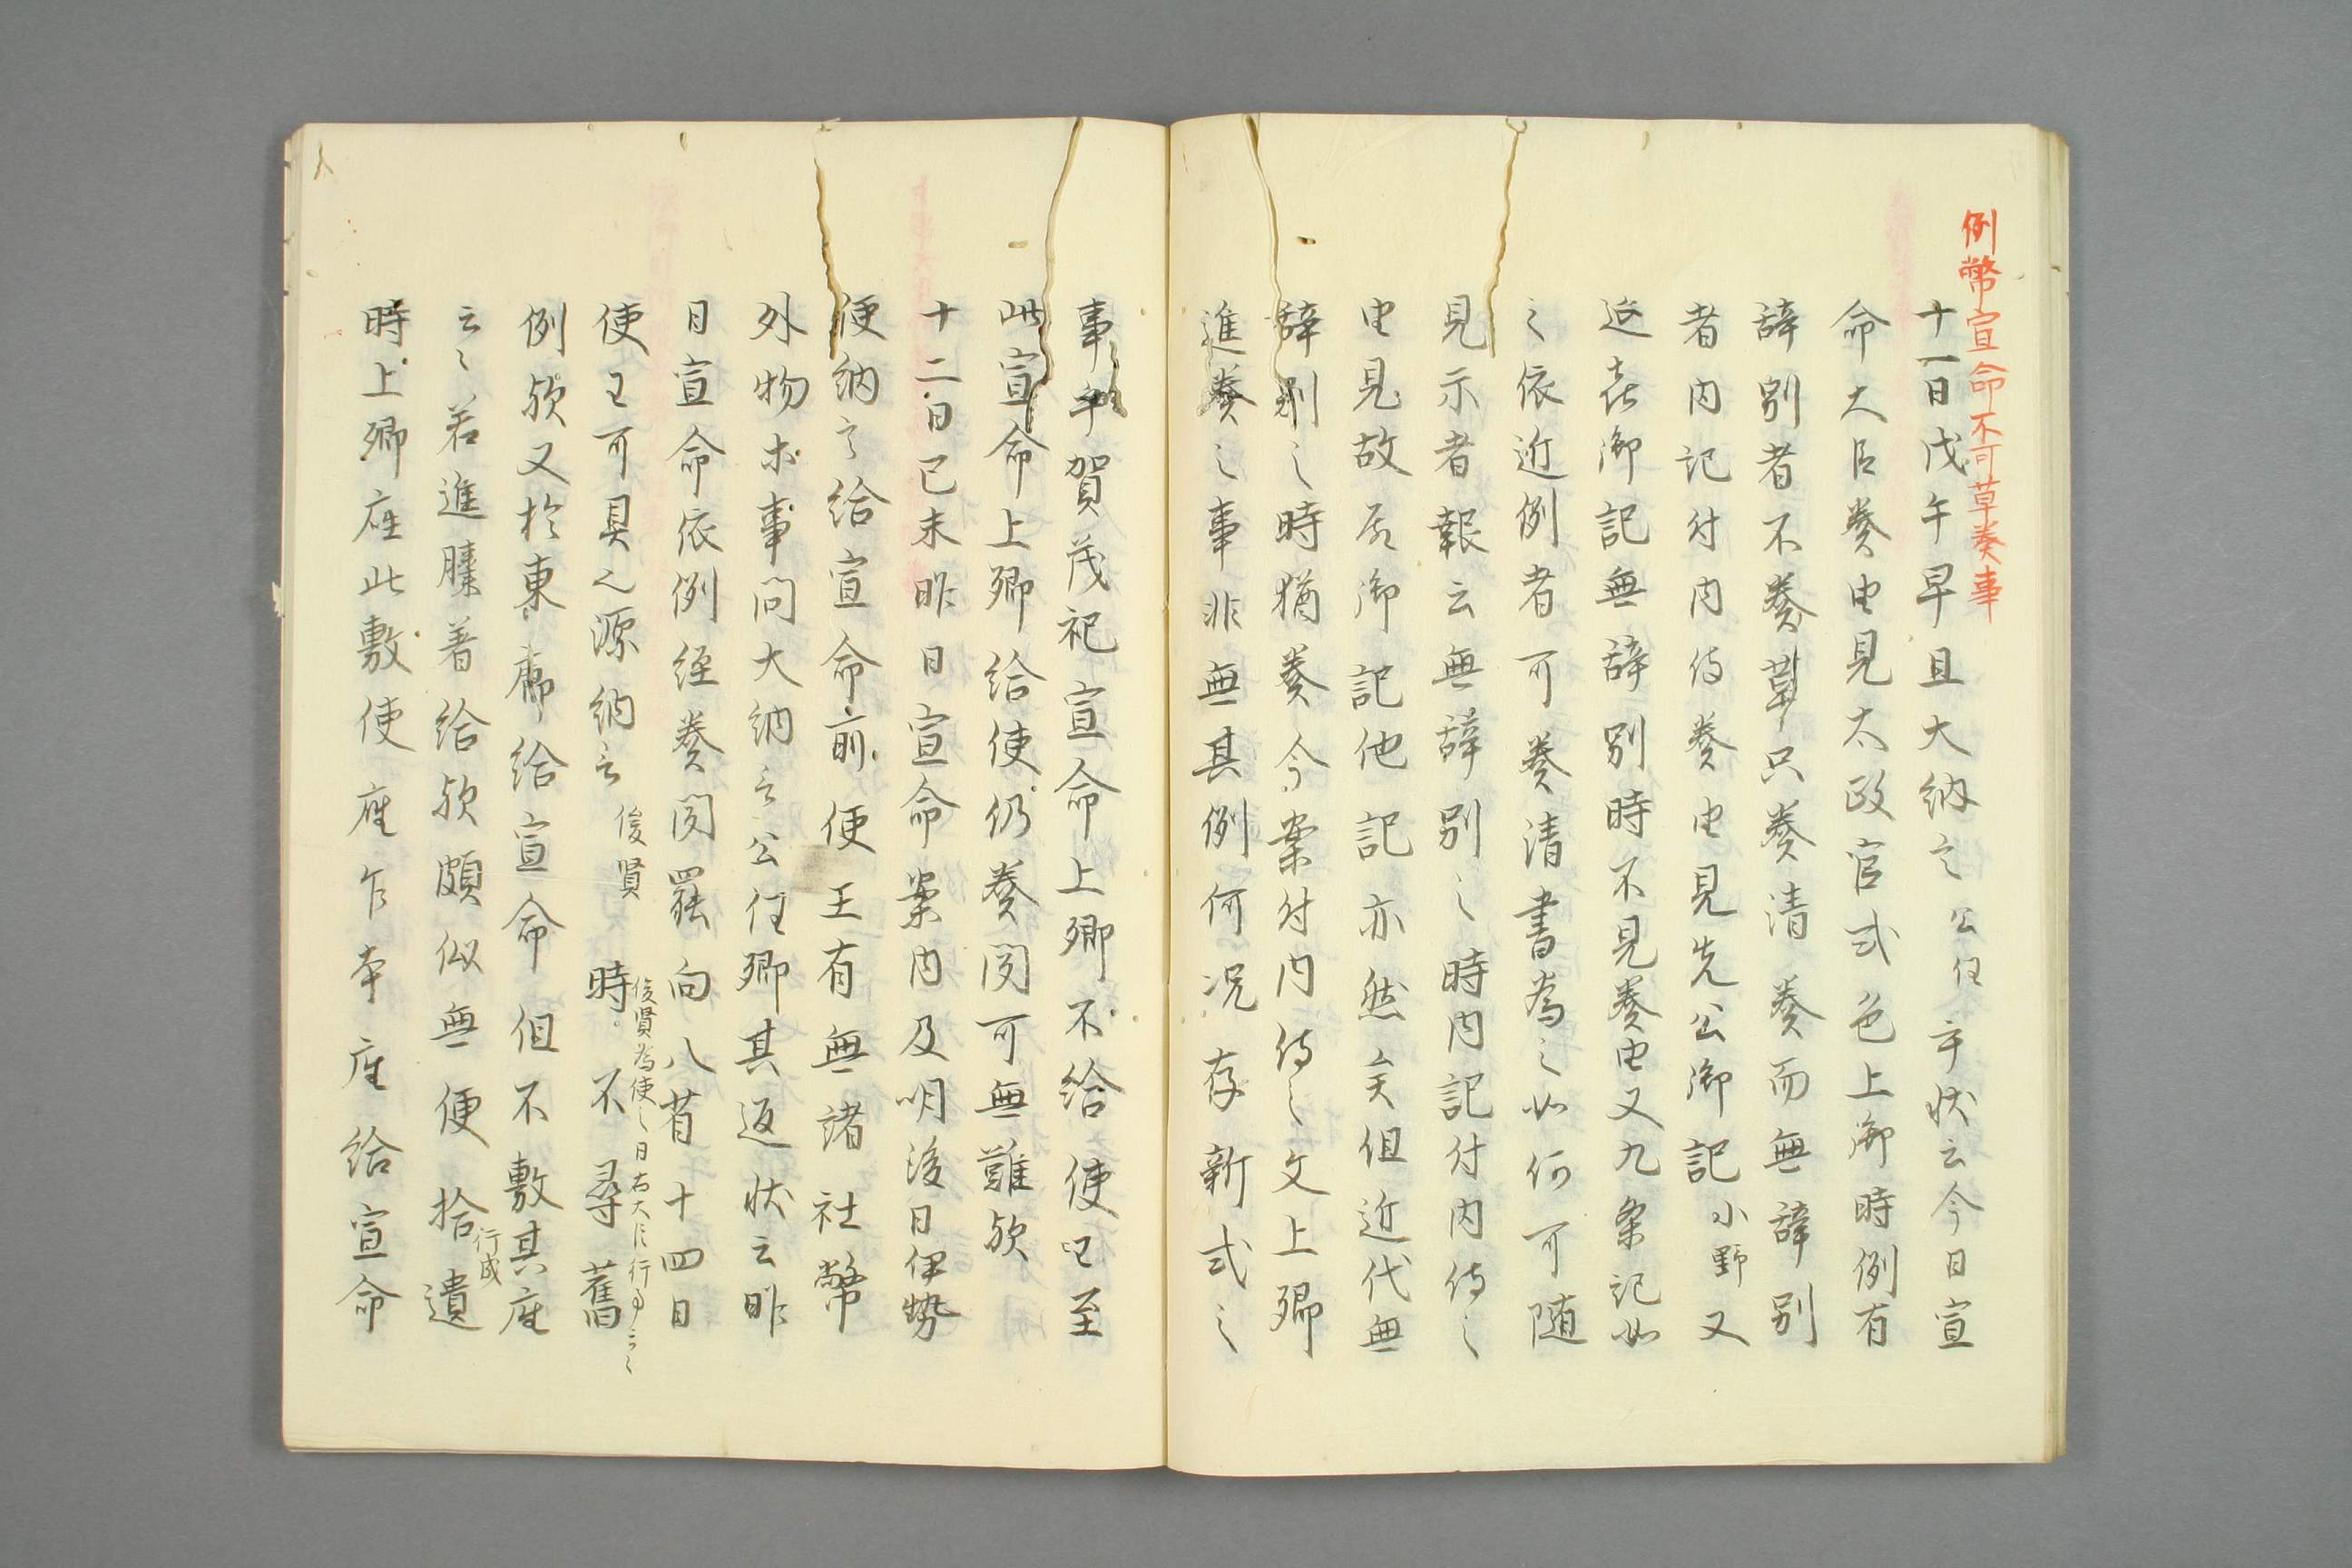 例幣宣命不可草奏事
十一日戊午早旦大納言公任示状云今日宣
命大臣奏由見太政官式色上御時例有
辞別者不奏草只奏清奏而無辞別
者内記付内侍奏由見先公御記小野又
延㐂御記無辞別時不見奏由又九条記如
之依近例者可奏清書為之如何可随
見示者報云無辞別之時内記付内侍之
由見故居御記他記亦然矣但近代無
辞別之時猶奏今案付内侍之文上卿
進奏之事非無其例何况存新式之
事乎賀茂祀宣命上卿不給使已至
此宣命上卿給使仍奏聞可無難欤
十二日己未昨日宣命案内及明後日伊勢
便納言給宣命前便王有無諸社幣
外物木事問大納言公任卿其返状云昨
日宣命依例経奏聞罷向八省十四日
使王可具之源納言俊賢時不尋舊
俊賢為使之日右大臣行事云々
例欤又於東廊給宣命但不敷其座
云々若進膝著給欤頗似無便拾遺
行成
時上卿座此敷使座乍本座給宣命